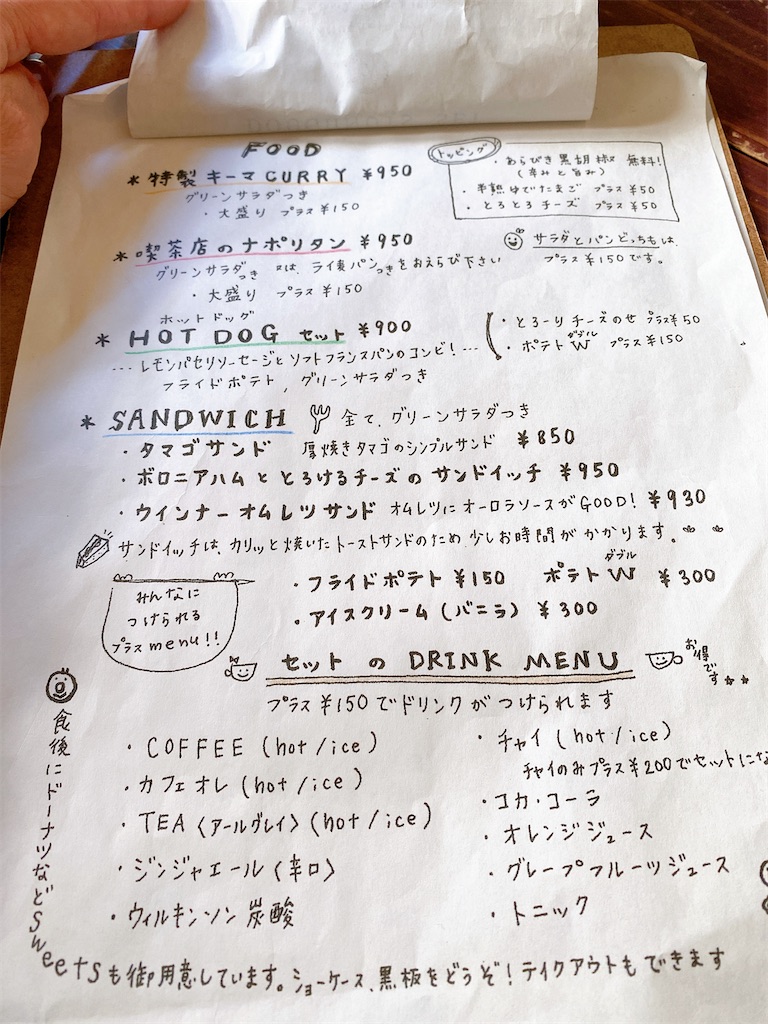 FOOD
* 特製 キーマ CURRY ¥950
グリーンサラダつき
・大盛り プラス ¥150
トッピング
・あらびき黒胡椒 無料!
(辛みと旨み)
・半熟ゆでたまご プラス ¥50
・とろとろチーズ プラス ¥50
* 喫茶店のナポリタン ¥950
グリーンサラダつき 又は、ライ麦パンつきをおえらび下さい
・大盛り プラス ¥150
サラダとパンどっちもは、
プラス ¥150です。
ホットドッグ
* HOT DOG セット ¥900
--- レモンパセリソーセージとソフトフランスパンのコンビ! ---
フライドポテト, グリーンサラダつき
・とろーりチーズのせ プラス¥50
ダブル
・ポテトW プラス ¥150
* SANDWICH 全て、グリーンサラダつき
・タマゴサンド 厚焼きタマゴのシンプルサンド ¥850
・ボロニアハムととろけるチーズのサンドイッチ ¥950
・ウインナーオムレツサンド オムレツにオーロラソースがGOOD! ¥930
サンドイッチは、カリッと焼いたトーストサンドのため少しお時間がかかります。
みんなに
つけられる
プラスmenu!!
ダブル
・フライドポテト ¥150 ポテトW ¥300
・アイスクリーム(バニラ) ¥300
セットの DRINK MENU
お得です
プラス ¥150でドリンクがつけられます
・COFFEE (hot/ice)
・カフェオレ (hot/ice)
・TEA〈アールグレイ〉(hot/ice)
・ジンジャエール〈辛口〉
・ウィルキンソン炭酸
・チャイ (hot/ice)
チャイのみプラス¥200でセットにな
・コカ・コーラ
・オレンジジュース
・グレープフルーツジュース
・トニック
食後にドーナツなどSweetsも御用意しています。ショーケース、黒板をどうぞ!テイクアウトもできます